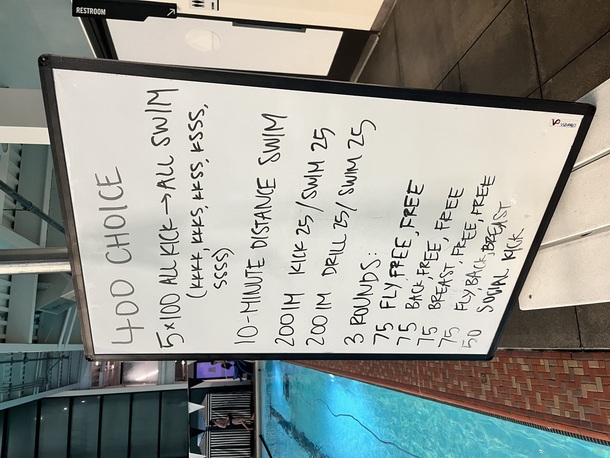 RESTROOM
400 CHOICE
5x100 ALL KICK → ALL SWIM
(KKKK, KKKS, KKSS, KSSS,
SSSS)
10-MINUTE DISTANCE SWIM
200 IM KICK 25/SWIM 25
200 IM DRILL 25/SWIM 25
3 ROUNDS:
75 FLY, FREE, FREE
75 BACK, FREE, FREE
75 BREAST, FREE, FREE
75 FLY, BACK, BREAST
50 SOCIAL KICK